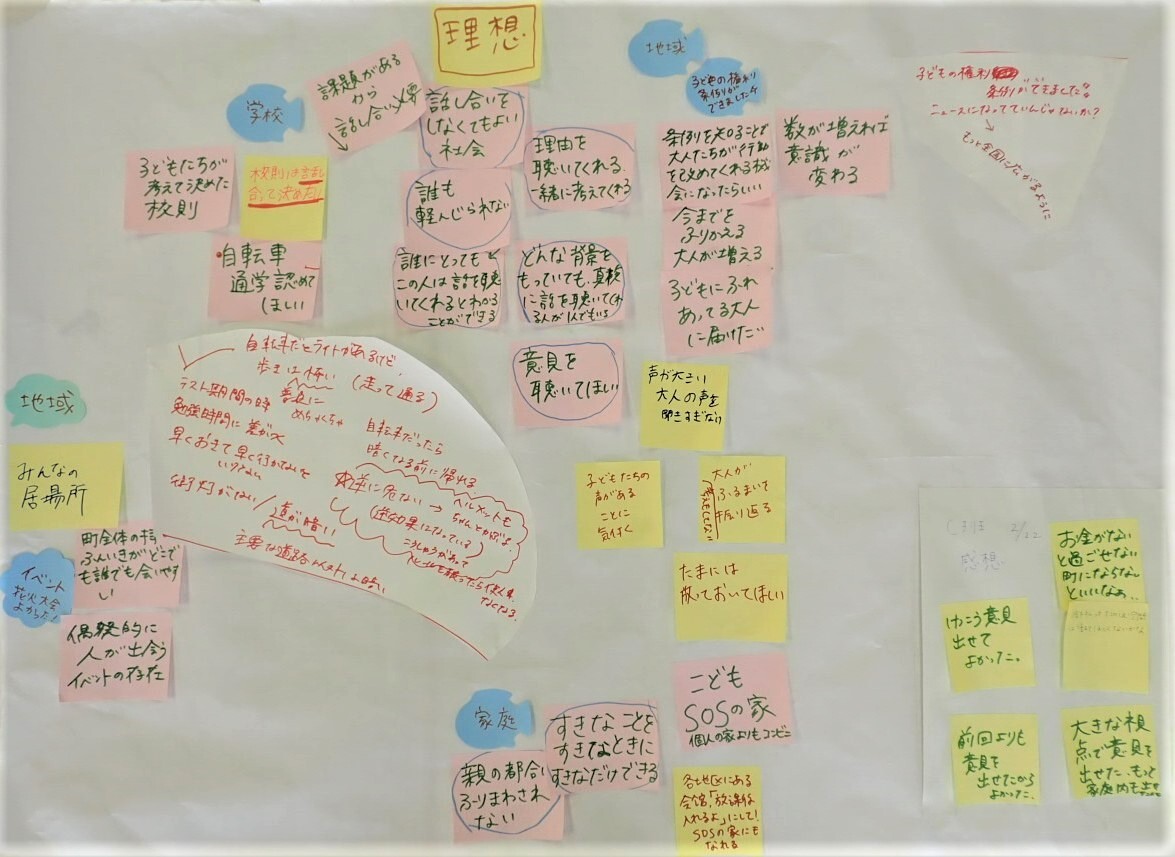 理想
学校
課題がある
から
話し合い必要
話し合いを
しなくてもよい
社会
子どもたちが
考えて決めた
校則
校則は話し
合って決めたい
自転車
通学認めて
ほしい
誰も
軽んじられない
理由を
聴いてくれる。
一緒に考えてくれる
誰にとっても
この人は話を聴
いてくれるとわかる
ことができる
どんな背景を
もっていても、真検
に話を聴いてくれ
る人が1人でもいる
意見を
聴いてほしい
地域
子どもの権利
条例が
できました
条例を知ることで
大人たちが行動
を改めてくれる機
会になったらいい
今までを
ふりかえる
大人が増える
子どもにふれ
あってる大人
に届けたい
数が増えれば
意識が
変わる
子どもの権利
条例ができました
ニュースになっていいんじゃないか?
もっと全国に広がるように
自転車だとライトがあるけど、
歩きは怖い
(走って通る)
テスト期間の時
勉強時間に差が出
早くおきて早く行かないと
いけない
めちゃくちゃ
自転車だったら
暗くなる前に帰れる
街灯がない/道が暗い
逆に危ない→ヘルメットも
ちゃんとかぶる。
(逆効果になっている)
主要な道路
声が大きい
大人の声を
聞きすぎない
子どもたちの
声がある
ことに
気付く
大人が
ふるまいを
振り返る
たまには
放っておいてほしい
こども
SOSの家
個人の家よりもコンビニ
各地区にある
会館、「放課後
入れるよ」にして!
SOSの家にも
なれる
地域
みんなの
居場所
町全体の
ふんいきがどこで
も誰でも会いやす
い
イベント
花火大会
よかった!
偶発的に
人が出会う
イベントの存在
家庭
親の都合に
ふりまわされ
ない
すきなことを
すきなときに
すきなだけできる
2/22
感想
お金がない
と過ごせない
町にならない
といいなぁ..
けっこう意見
出せて
よかった。
前回よりも
意見を
出せてたから
よかった.
大きな視
点で意見を
出せた。もっと
家庭内も